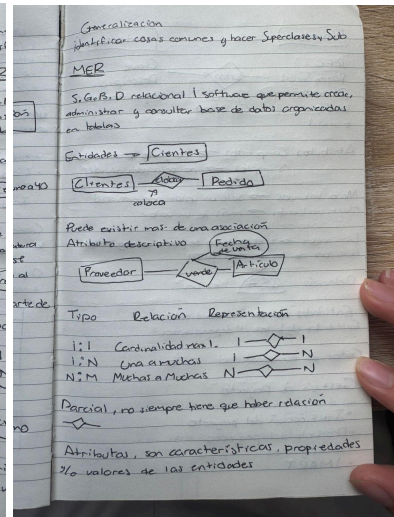 Generalización
identificar cosas comunes y hacer Superclases y Sub
MER
S.G.B.D relacional | software que permite crear,
administrar y consultar base de datos organizadas
en tablas
Entidades → Cientes
Clientes coloca Pedido
coloca
Puede existir mas de una asociación
Atributo descriptivo Fecha
de venta
Proveedor vende Artículo
Tipo Relación Representación
1:1 Cardinalidad max 1. 1 1
1:N Una a muchas 1 N
N:M Muchas a Muchas N N
Parcial, no siempre tiene que haber relación
Atributos, son características, propiedades
y/o valores de las entidades